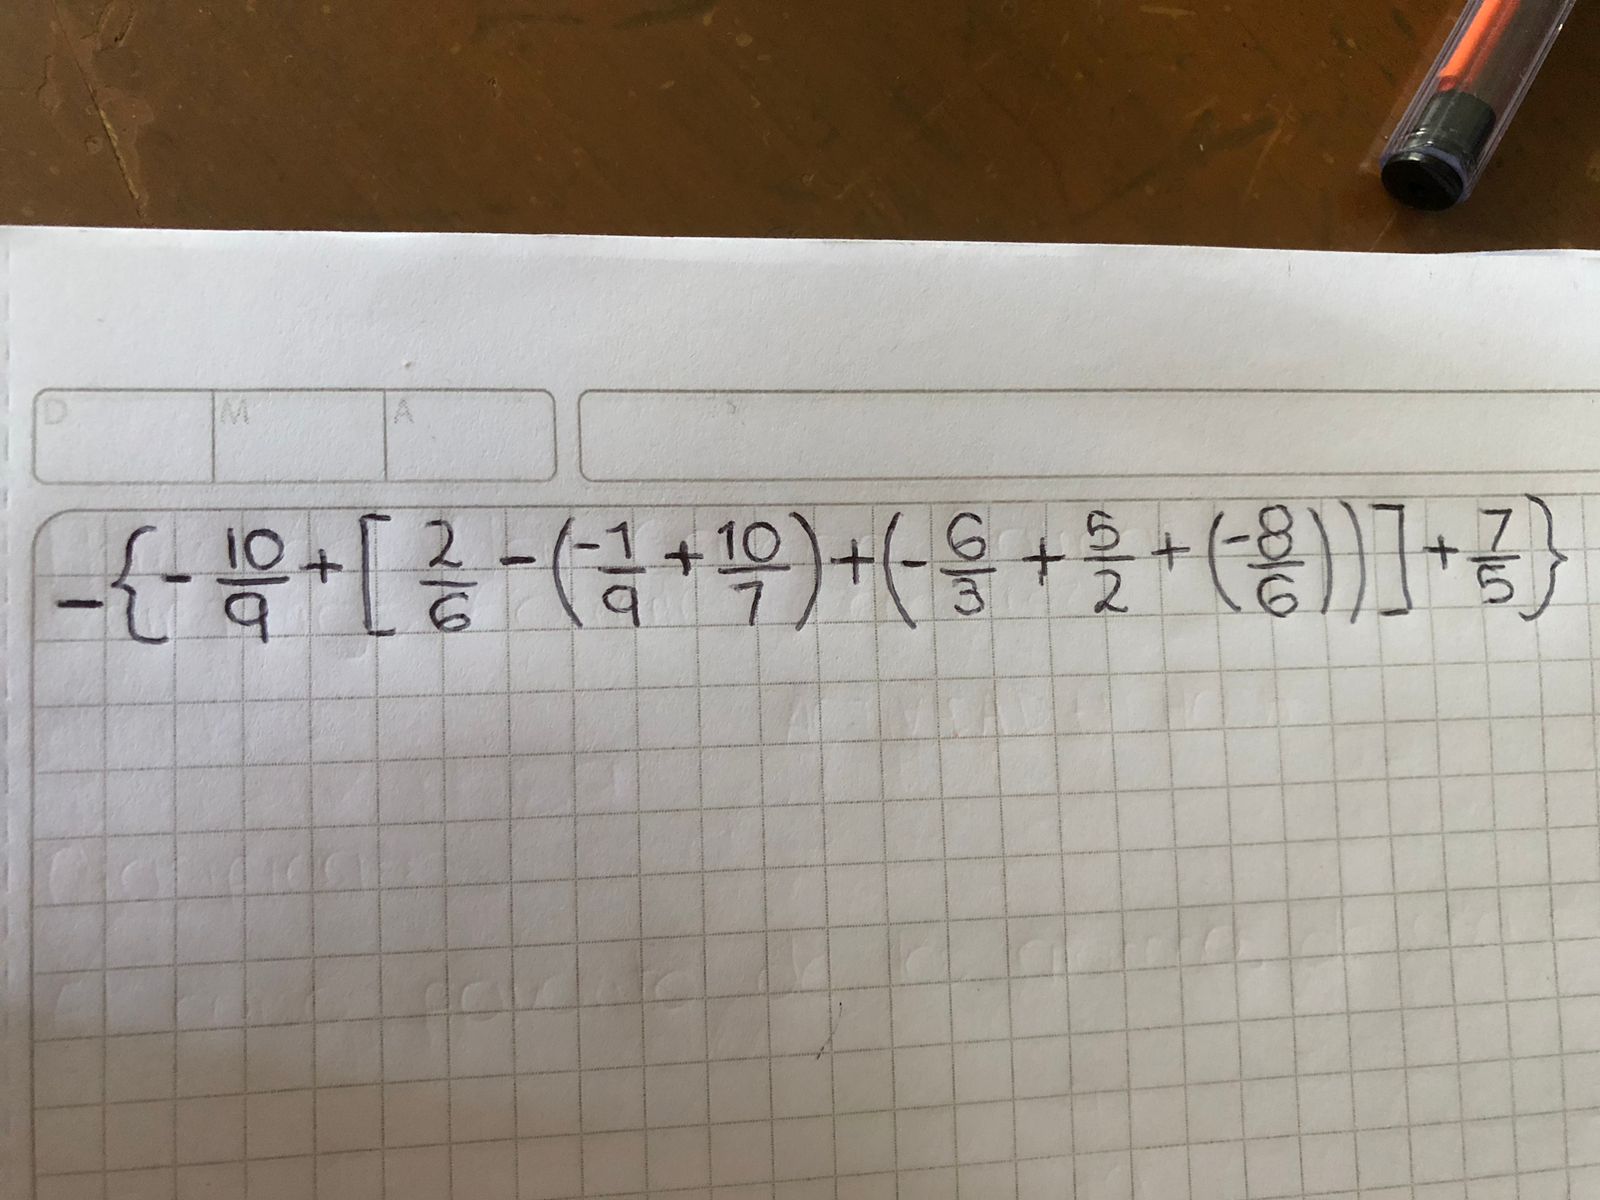 D M A
-{-10/9+[2/6-(-1/9+10/7)+(-6/3+5/2+(-8/6))]+7/5}